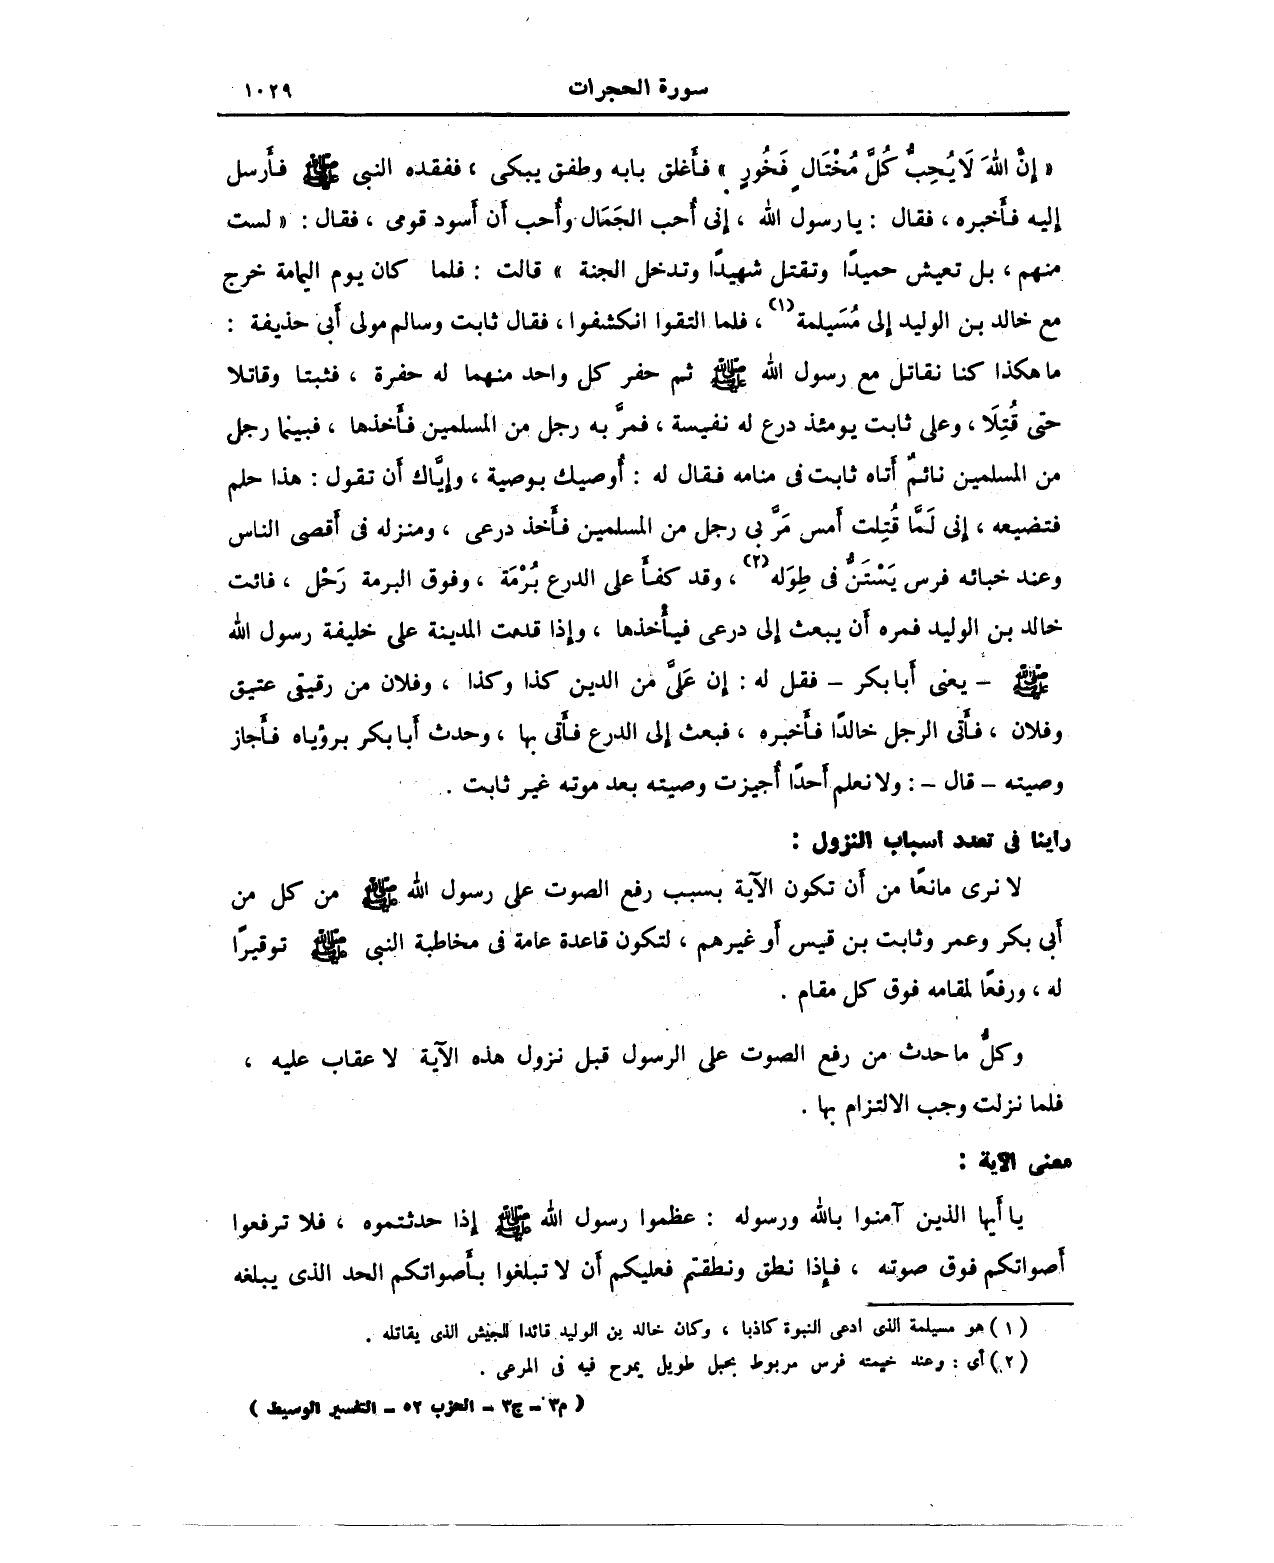 سورة الحجرات ١٠٢٩
« إِنَّ اللهَ لَا يُحِبُّ كُلَّ مُخْتَالٍ فَخُورٍ » فأَغلق بابه وطفق يبكى ، ففقده النبى ﷺ فأَرسل
إليه فأَخبره ، فقال : يا رسول الله ، إنى أُحب الجَمَال وأُحب أَن أَسود قومى ، فقال : « لست
منهم ، بل تعيش حميدًا وتقتل شهيدًا وتدخل الجنة » قالت : فلما كان يوم اليمامة خرج
مع خالد بن الوليد إلى مُسَيلمة (١) ، فلما التقوا انكشفوا ، فقال ثابت وسالم مولى أَبى حذيفة :
ما هكذا كنا نقاتل مع رسول الله ﷺ ثم حفر كل واحد منهما له حفرة ، فثبتا وقاتلا
حتى قُتِلَا ، وعلى ثابت يومئذ درع له نفيسة ، فمرَّ به رجل من المسلمين فأَخذها ، فبينما رجل
من المسلمين نائمٌ أَتاه ثابت فى منامه فقال له : أُوصيك بوصية ، وإِيَّاك أَن تقول : هذا حلم
فتضيعه ، إنى لَمَّا قُتِلت أَمس مَرَّ بى رجل من المسلمين فأَخذ درعى ، ومنزله فى أَقصى الناس
وعند خبائه فرس يَسْتَنُّ فى طِوَله (٢) ، وقد كفأَ على الدرع بُرْمَة ، وفوق البرمة رَحْل ، فائت
خالد بن الوليد فمره أَن يبعث إلى درعى فيأْخذها ، وإذا قدمت المدينة على خليفة رسول الله
ﷺ – يعنى أَبا بكر – فقل له : إن عَلَىَّ من الدين كذا وكذا ، وفلان من رقيقى عتيق
وفلان ، فأَتى الرجل خالدًا فأَخبره ، فبعث إلى الدرع فأَتى بها ، وحدث أَبا بكر برؤياه فأَجاز
وصيته – قال – : ولا نعلم أَحدًا أُجيزت وصيته بعد موته غير ثابت .
رأينا فى تعدد أسباب النزول :
لا نرى مانعًا من أَن تكون الآية بسبب رفع الصوت على رسول الله ﷺ من كل من
أَبى بكر وعمر وثابت بن قيس أَو غيرهم ، لتكون قاعدة عامة فى مخاطبة النبى ﷺ توقيرًا
له ، ورفعًا لمقامه فوق كل مقام .
وكلُّ ما حدث من رفع الصوت على الرسول قبل نزول هذه الآية لا عقاب عليه ،
فلما نزلت وجب الالتزام بها .
معنى الآية :
يا أَيها الذين آمنوا بالله ورسوله : عظموا رسول الله ﷺ إذا حدثتموه ، فلا ترفعوا
أَصواتكم فوق صوته ، فإِذا نطق ونطقتم فعليكم أَن لا تبلغوا بأَصواتكم الحد الذى يبلغه
(١) هو مسيلمة الذى ادعى النبوة كاذبا ، وكان خالد بن الوليد قائدا للجيش الذى يقاتله .
(٢) أى : وعند خيمته فرس مربوط بحبل طويل يمرح فيه فى المرعى .
( م٣ – ج٣ – الحزب ٥٢ – التفسير الوسيط )